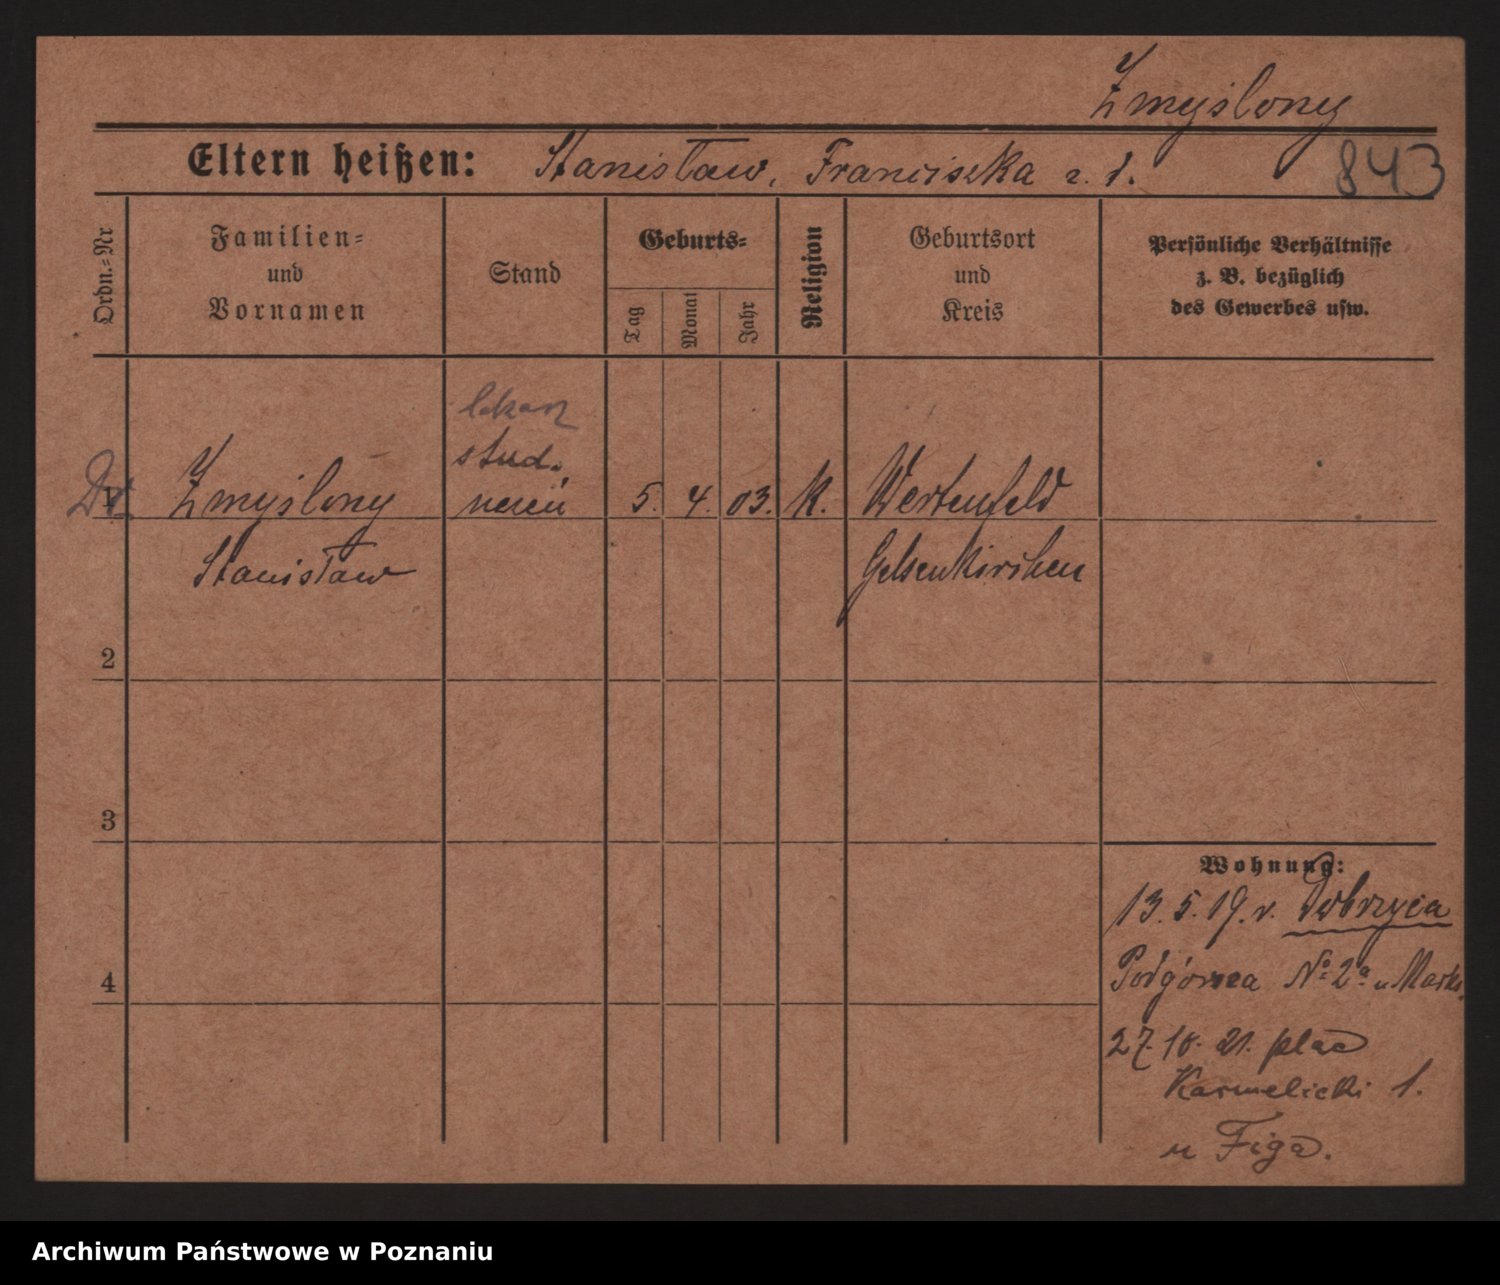 Zmyślony
Eltern heißen: Stanisław, Franciszka z. d.
843
Ordn.-Nr
Familien-
und
Vornamen
Stand
Geburts-
Tag
Monat
Jahr
Religion
Geburtsort
und
Kreis
Persönliche Verhältnisse
z. B. bezüglich
des Gewerbes usw.
lekarz
stud.
Dr Zmyślony 5. 4. 03. K.
Stanisław Gelsenkirchen
2
3
4
Wohnung:
13. 5. 19. v. Dobrzyca
Podgórna No 2a u Marks
27. 10. 21. plac
Karmelicki 1.
u Figa.
Archiwum Państwowe w Poznaniu